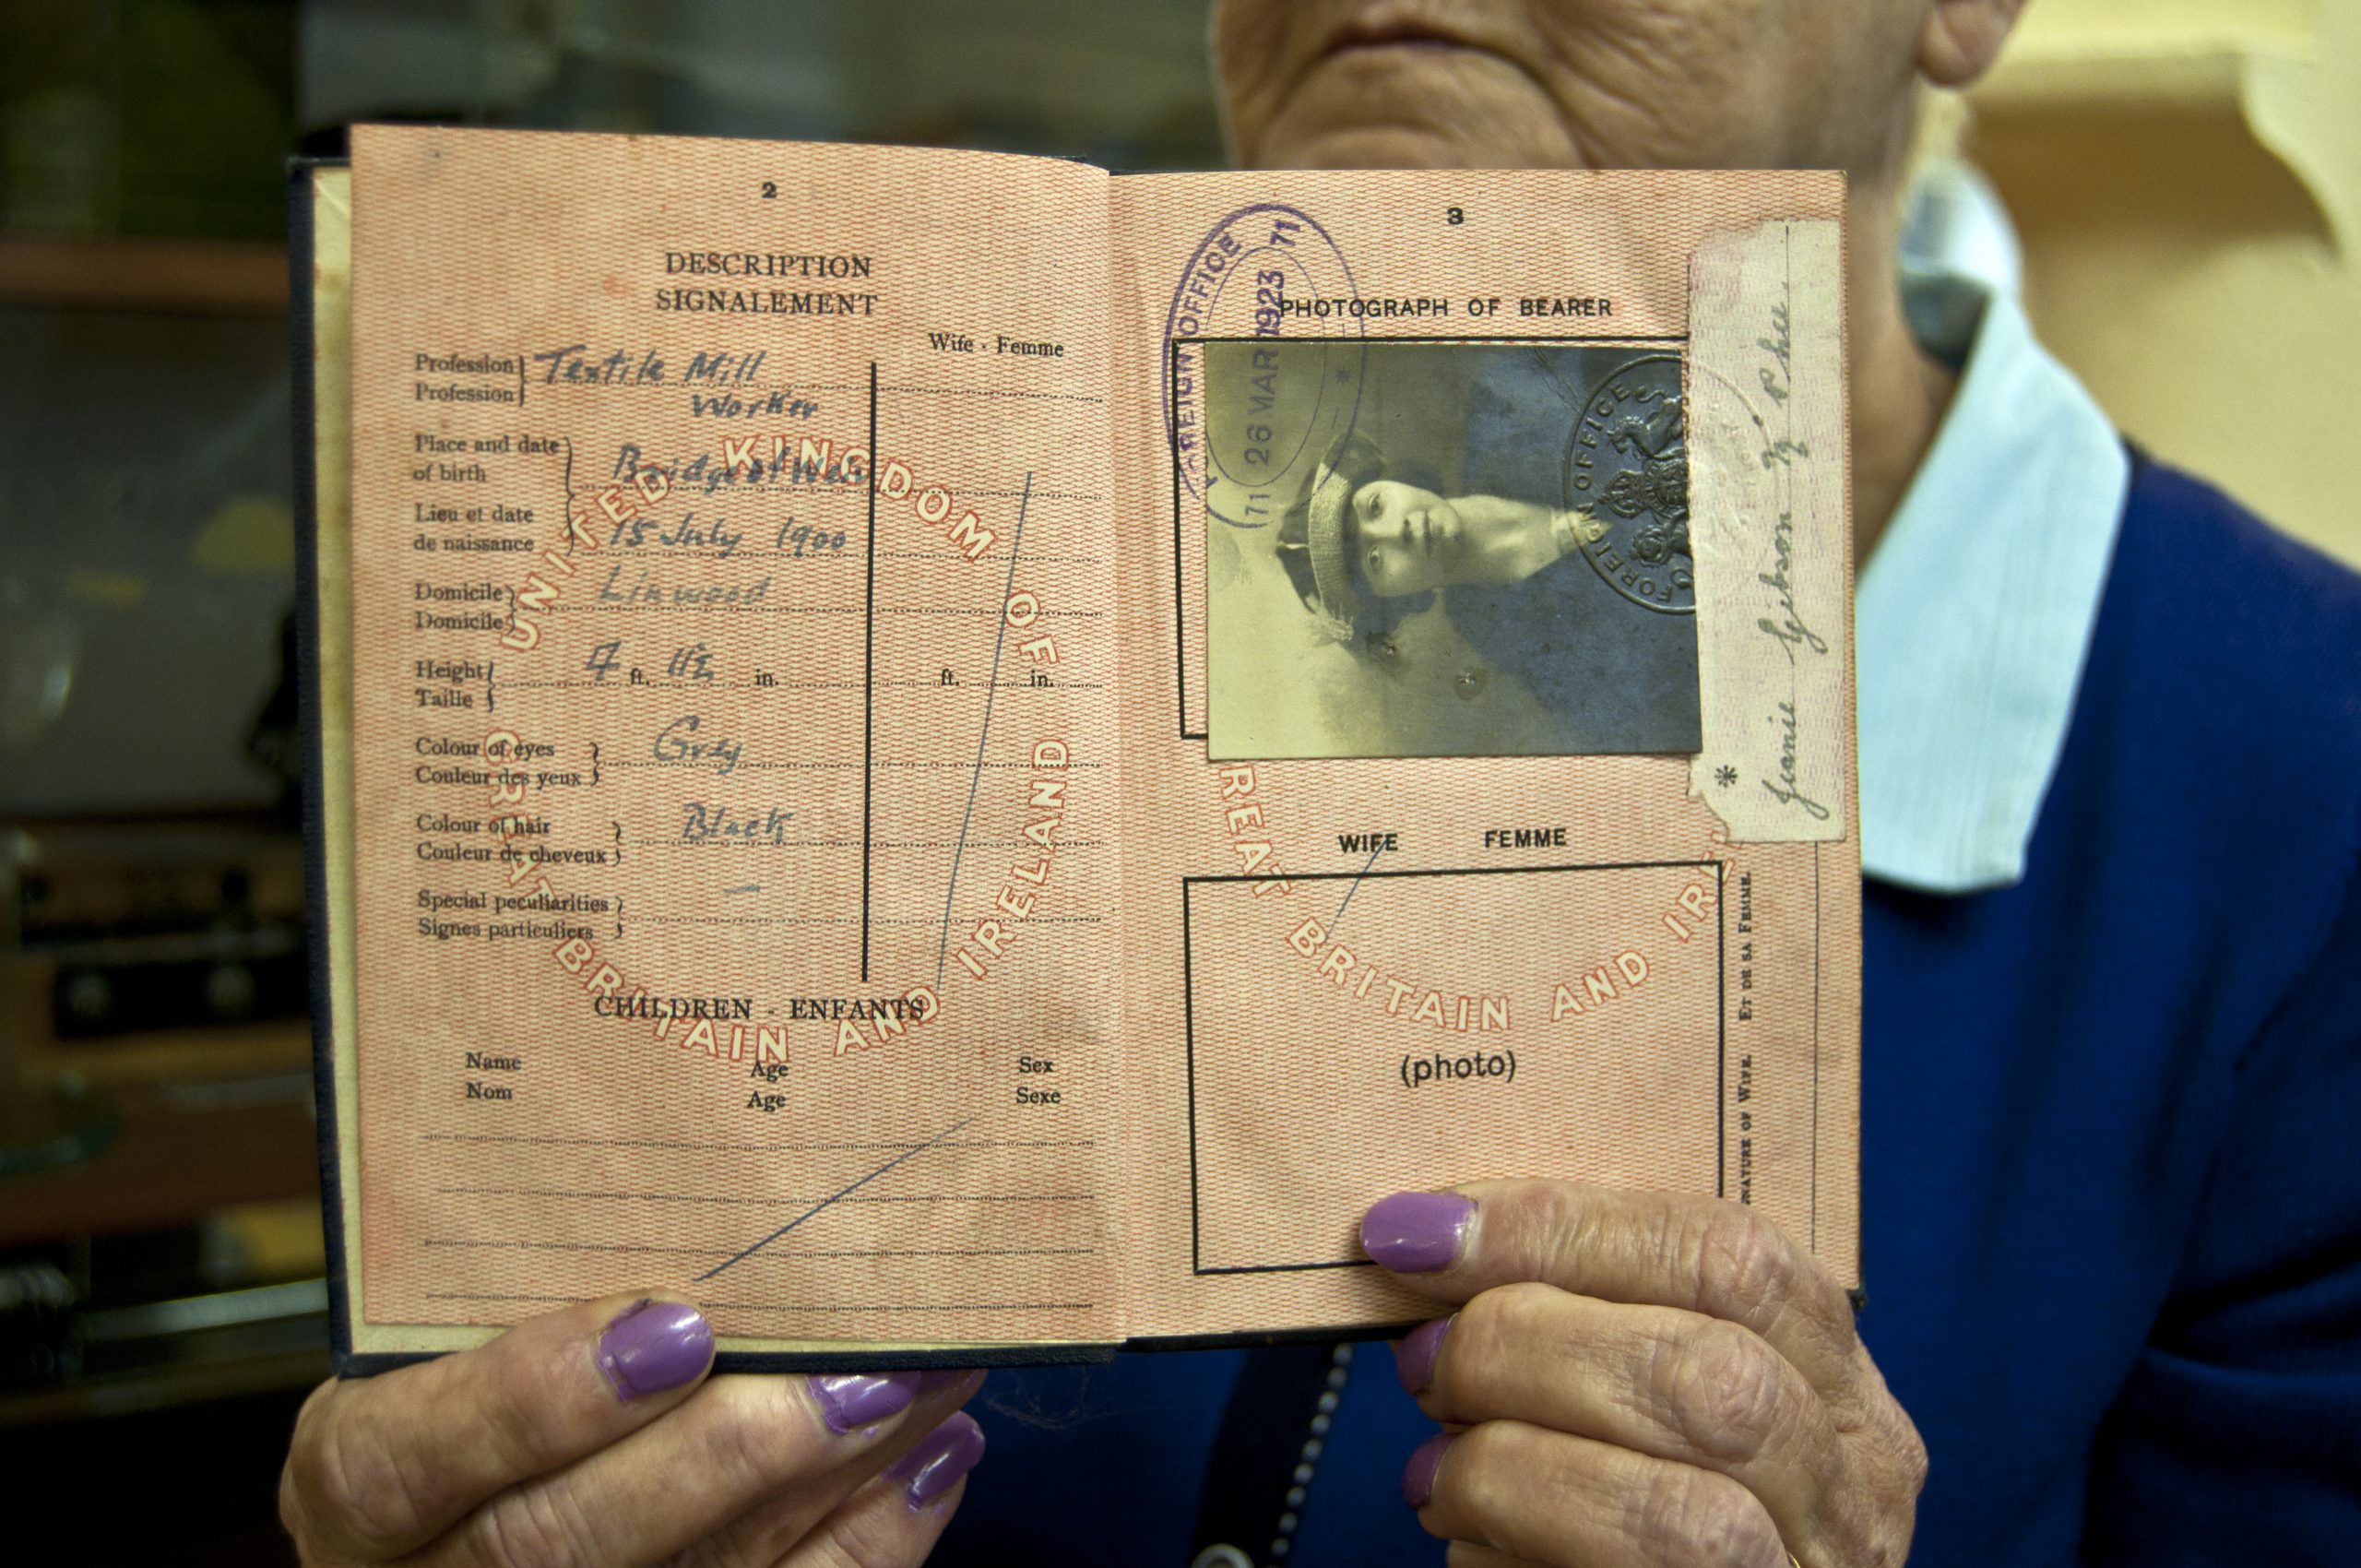 2
DESCRIPTION
SIGNALEMENT
Wife - Femme
Profession
Profession
Textile Mill
Worker
Place and date
of birth
Lieu et date
de naissance
Bridge of Weir
15 July 1900
Domicile
Domicile
Linwood
Height
Taille
4 ft. 11½ in.
ft. in.
Colour of eyes
Couleur des yeux
Grey
Colour of hair
Couleur de cheveux
Black
Special peculiarities
Signes particuliers
—
CHILDREN - ENFANTS
Name Age Sex
Nom Age Sexe
UNITED KINGDOM OF
GREAT BRITAIN AND IRELAND
3
FOREIGN OFFICE
71
26 MAR 1923
71
*
PHOTOGRAPH OF BEARER
FOREIGN OFFICE
* Jeanie Gibson Mc Phee.
WIFE FEMME
(photo)
REAT BRITAIN AND IREL
NATURE OF WIFE. ET DE SA FEMME.